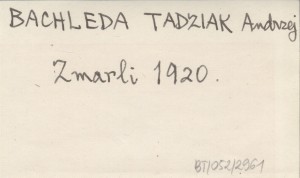 BACHLEDA TADZIAK Andrzej
Zmarli 1920.
BT/052/2961